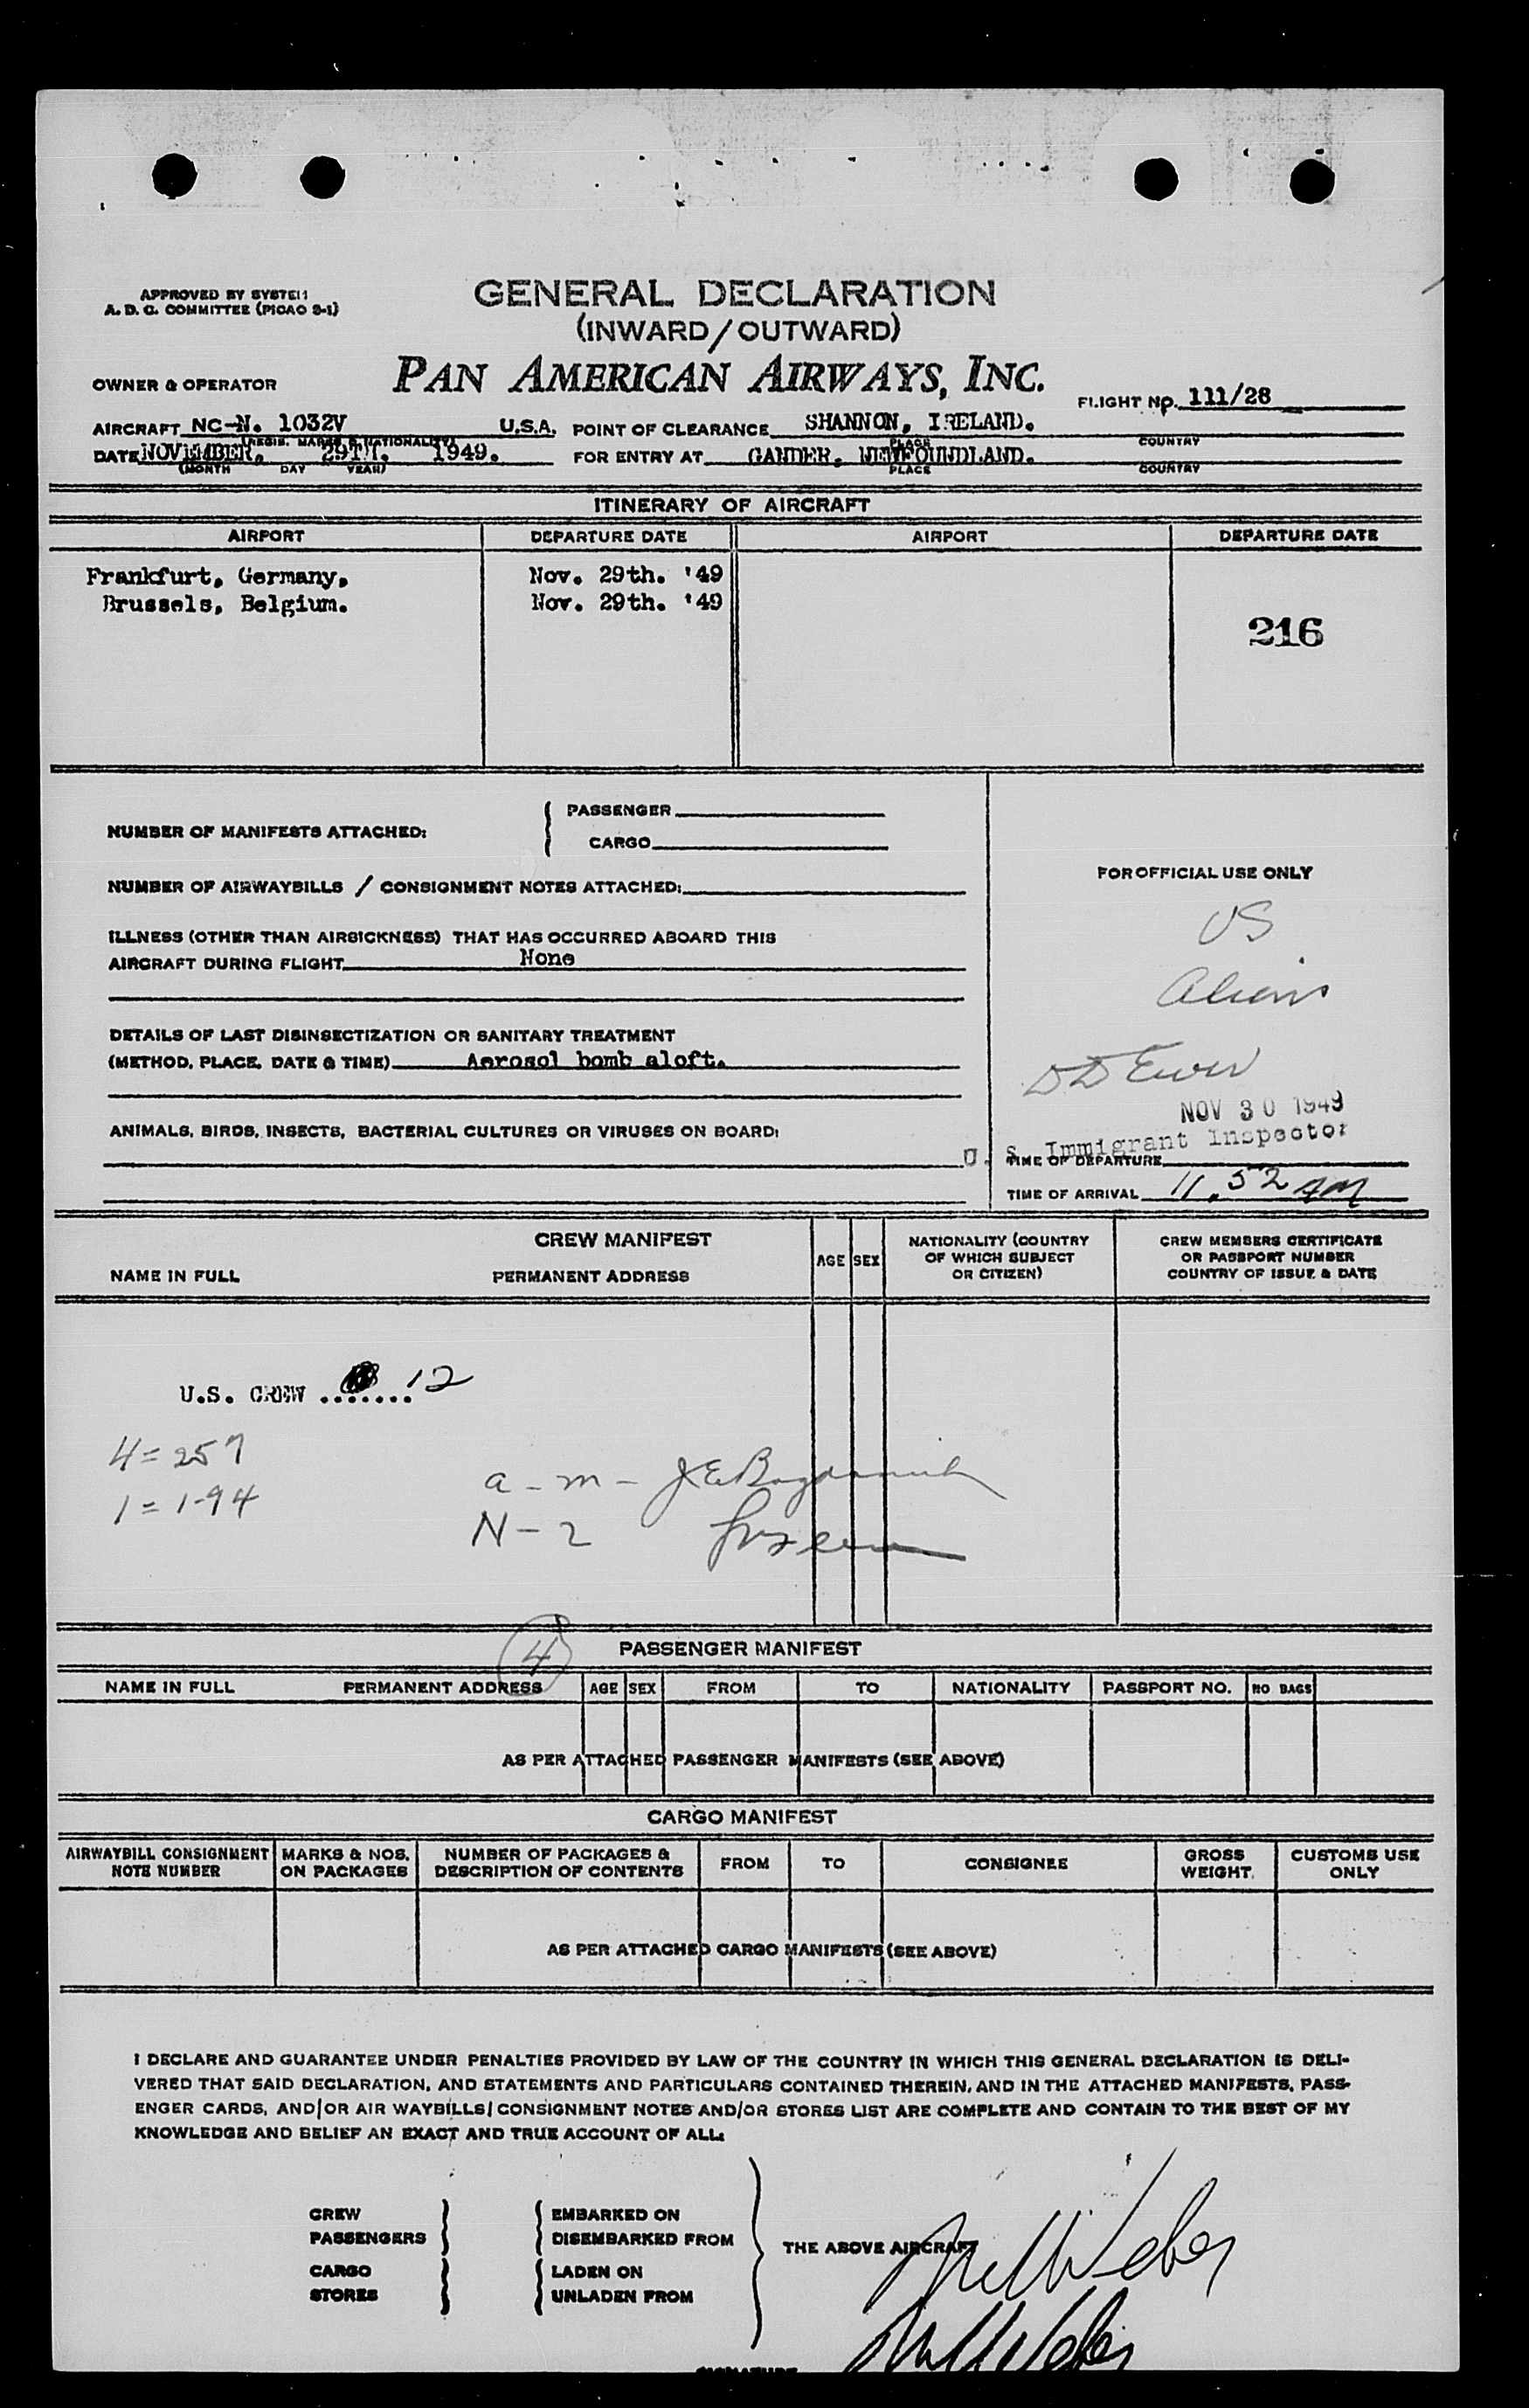 APPROVED BY SYSTEM
A. D. C. COMMITTEE (PICAO S-1)
GENERAL DECLARATION
(INWARD/OUTWARD)
OWNER & OPERATOR
PAN AMERICAN AIRWAYS, INC.
FLIGHT NO. 111/28
AIRCRAFT NC-N. 1032V U.S.A. POINT OF CLEARANCE SHANNON, IRELAND.
(REGIS. MARKS & NATIONALITY) PLACE COUNTRY
DATE NOVEMBER. 29TH. 1949. FOR ENTRY AT GANDER, NEWFOUNDLAND.
(MONTH DAY YEAR) PLACE COUNTRY
ITINERARY OF AIRCRAFT
AIRPORT DEPARTURE DATE AIRPORT DEPARTURE DATE
Frankfurt, Germany, Nov. 29th. '49
Brussels, Belgium. Nov. 29th. '49
216
NUMBER OF MANIFESTS ATTACHED: PASSENGER
CARGO
NUMBER OF AIRWAYBILLS / CONSIGNMENT NOTES ATTACHED:
FOR OFFICIAL USE ONLY
US
Aliens
ILLNESS (OTHER THAN AIRSICKNESS) THAT HAS OCCURRED ABOARD THIS
AIRCRAFT DURING FLIGHT None
DETAILS OF LAST DISINSECTIZATION OR SANITARY TREATMENT
(METHOD, PLACE, DATE & TIME) Aerosol bomb aloft.
NOV 30 1949
ANIMALS, BIRDS, INSECTS, BACTERIAL CULTURES OR VIRUSES ON BOARD:
U. S. Immigrant Inspector
TIME OF DEPARTURE
TIME OF ARRIVAL 11.52 AM
CREW MANIFEST
NAME IN FULL PERMANENT ADDRESS AGE SEX NATIONALITY (COUNTRY OF WHICH SUBJECT OR CITIZEN) CREW MEMBERS CERTIFICATE OR PASSPORT NUMBER COUNTRY OF ISSUE & DATE
U.S. CREW ....... 12
4 = 257
1 = 1-94
a - m -
N - 2
4
PASSENGER MANIFEST
NAME IN FULL PERMANENT ADDRESS AGE SEX FROM TO NATIONALITY PASSPORT NO. NO BAGS
AS PER ATTACHED PASSENGER MANIFESTS (SEE ABOVE)
CARGO MANIFEST
AIRWAYBILL CONSIGNMENT NOTE NUMBER MARKS & NOS. ON PACKAGES NUMBER OF PACKAGES & DESCRIPTION OF CONTENTS FROM TO CONSIGNEE GROSS WEIGHT. CUSTOMS USE ONLY
AS PER ATTACHED CARGO MANIFESTS (SEE ABOVE)
I DECLARE AND GUARANTEE UNDER PENALTIES PROVIDED BY LAW OF THE COUNTRY IN WHICH THIS GENERAL DECLARATION IS DELI-
VERED THAT SAID DECLARATION, AND STATEMENTS AND PARTICULARS CONTAINED THEREIN, AND IN THE ATTACHED MANIFESTS, PASS-
ENGER CARDS, AND/OR AIR WAYBILLS/ CONSIGNMENT NOTES AND/OR STORES LIST ARE COMPLETE AND CONTAIN TO THE BEST OF MY
KNOWLEDGE AND BELIEF AN EXACT AND TRUE ACCOUNT OF ALL:
CREW EMBARKED ON
PASSENGERS DISEMBARKED FROM
THE ABOVE AIRCRAFT
CARGO LADEN ON
STORES UNLADEN FROM
SIGNATURE